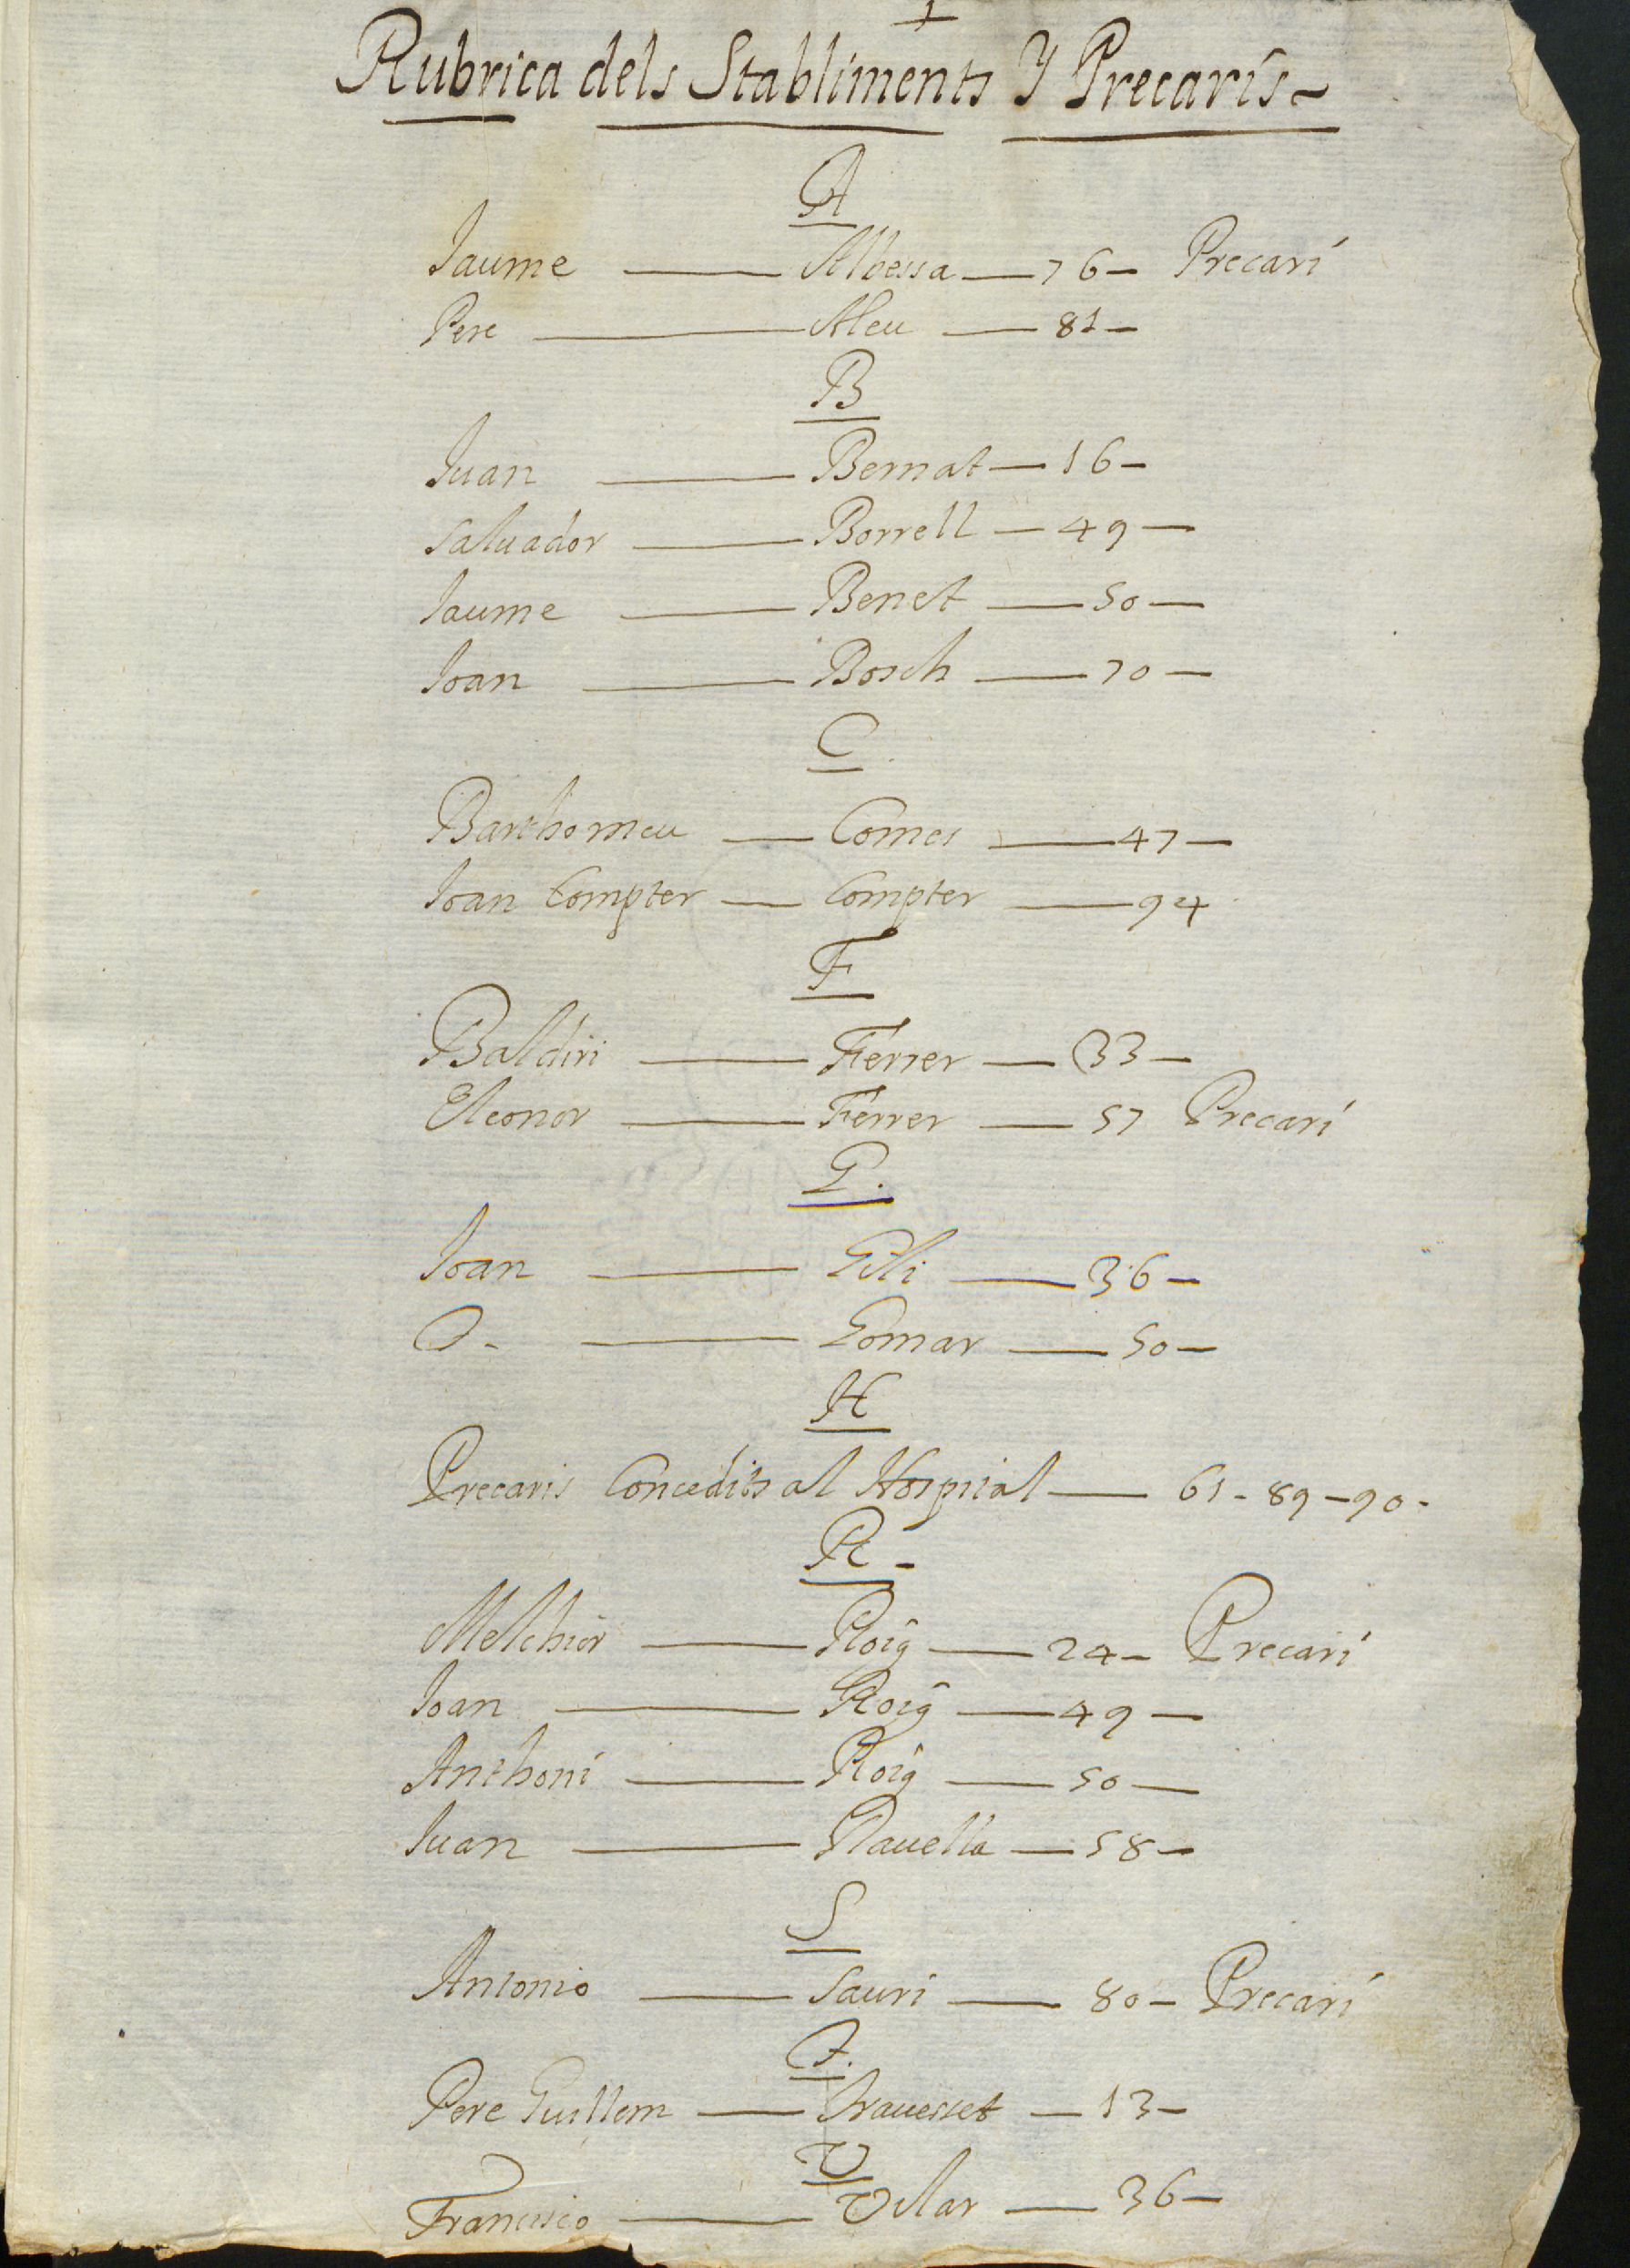 Rubrica dels Stabliments Y Precaris
A
Jaume — Albessa — 76 — Precari
Pere — Aleu — 81 —
B
Juan — Bernat — 16 —
Saluador — Borrell — 49 —
Jaume — Benet — 50 —
Joan — Bosch — 70 —
C
Barthomeu — Comes — 47 —
Joan Compter — Compter — 94
F
Baldiri — Ferrer — 33 —
Eleonor — Ferrer — 57 Precari
G.
Joan — Gili — 36 —
O — Gomar — 50 —
H
Precaris Concedits al Hospital — 61 - 89 - 90 -
R -
Melchior — Roig — 24 — Precari
Joan — Roig — 49 —
Anthoni — Roig — 50 —
Juan — Rauella — 58 —
S
Antonio — Sauri — 80 — Precari
T.
Pere Guillem — Trauesset — 13 —
V
Francisco — Vilar — 36 —